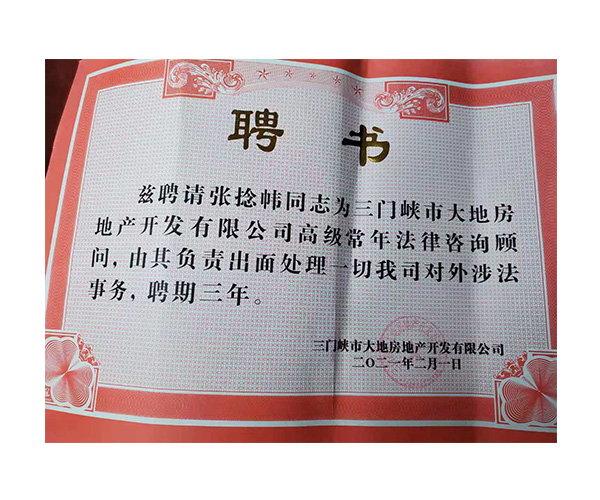 聘书
兹聘请张捻帏同志为三门峡市大地房
地产开发有限公司高级常年法律咨询顾
问，由其负责出面处理一切我司对外涉法
事务，聘期三年。
三门峡市大地房地产开发有限公司
二〇二一年二月一日